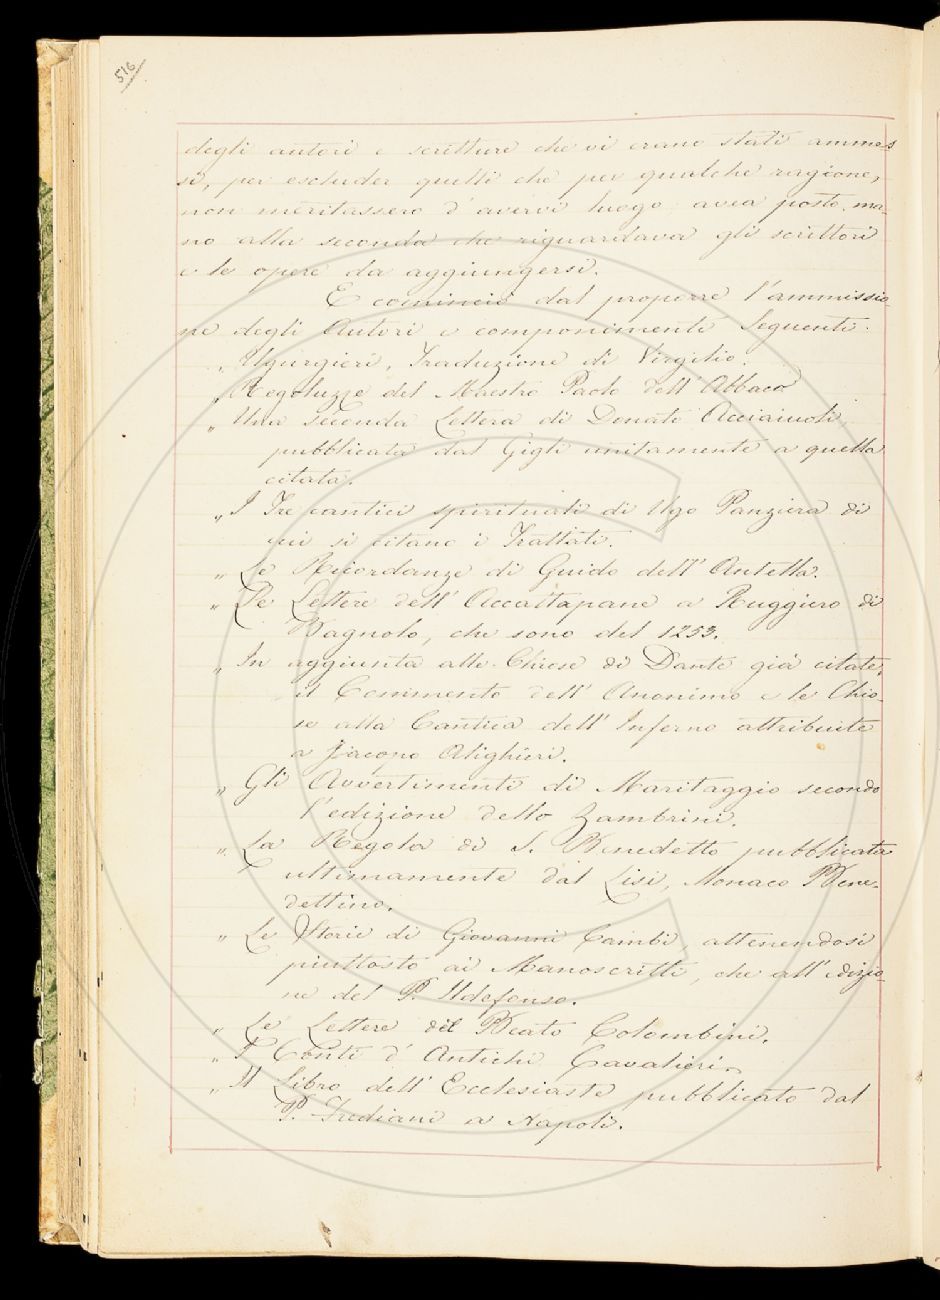 516
degli autori e scritture che vi erano stati ammes
si, per escluder quelli che per qualche ragione,
non meritassero d'avervi luogo, avea posto ma-
no alla seconda che riguardava gli scrittori
e le opere da aggiungersi.
E cominciò dal proporre l'ammissio-
ne degli Autori e componimenti seguenti.
„ Ugurgieri, Traduzione di Virgilio.
„ Regoluzze del Maestro Paolo dell'Abbaco
„ Una seconda Lettera di Donato Acciaiuoli,
pubblicata dal Gigli unitamente a quella
citata.
„ I Tre cantici spirituali di Ugo Panziera di
cui si citano i Trattati.
„ Le Ricordanze di Guido dell'Antella.
„ Le Lettere dell'Accattapane a Ruggiero di
Bagnolo, che sono del 1253.
„ In aggiunta alle Chiose di Dante già citate,
il Commento dell'Anonimo e le Chio-
se alla Cantica dell'Inferno attribuite
a Jacopo Alighieri.
„ Gli Avvertimenti di Maritaggio secondo
l'edizione dello Zambrini.
„ La Regola di S. Benedetto pubblicata
ultimamente dal Lisi, Monaco Bene-
dettino.
„ Le Storie di Giovanni Cambi, attenendosi
piuttosto ai Manoscritti, che all'edizio-
ne del P. Ildefonso.
„ Le Lettere del Beato Colombini.
„ I Conti d'Antichi Cavalieri.
„ Il Libro dell'Ecclesiaste pubblicato dal
P. Frediani a Napoli.